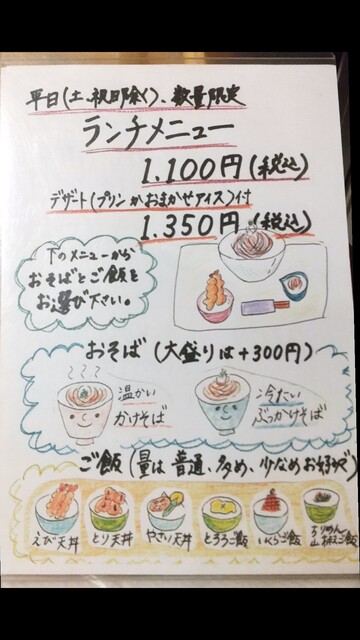 平日(土、祝日除く)、数量限定
ランチメニュー
1.100円(税込)
デザート(プリンかおまかせアイス)付
1.350円(税込)
下のメニューから
おそばとご飯を
お選び下さい。
おそば(大盛りは+300円)
温かい
かけそば
冷たい
ぶっかけそば
ご飯(量は普通、多め、少なめお好みで)
えび天丼
とり天丼
やさい天丼
とろろご飯
いくらご飯
ちりめん
山椒ご飯